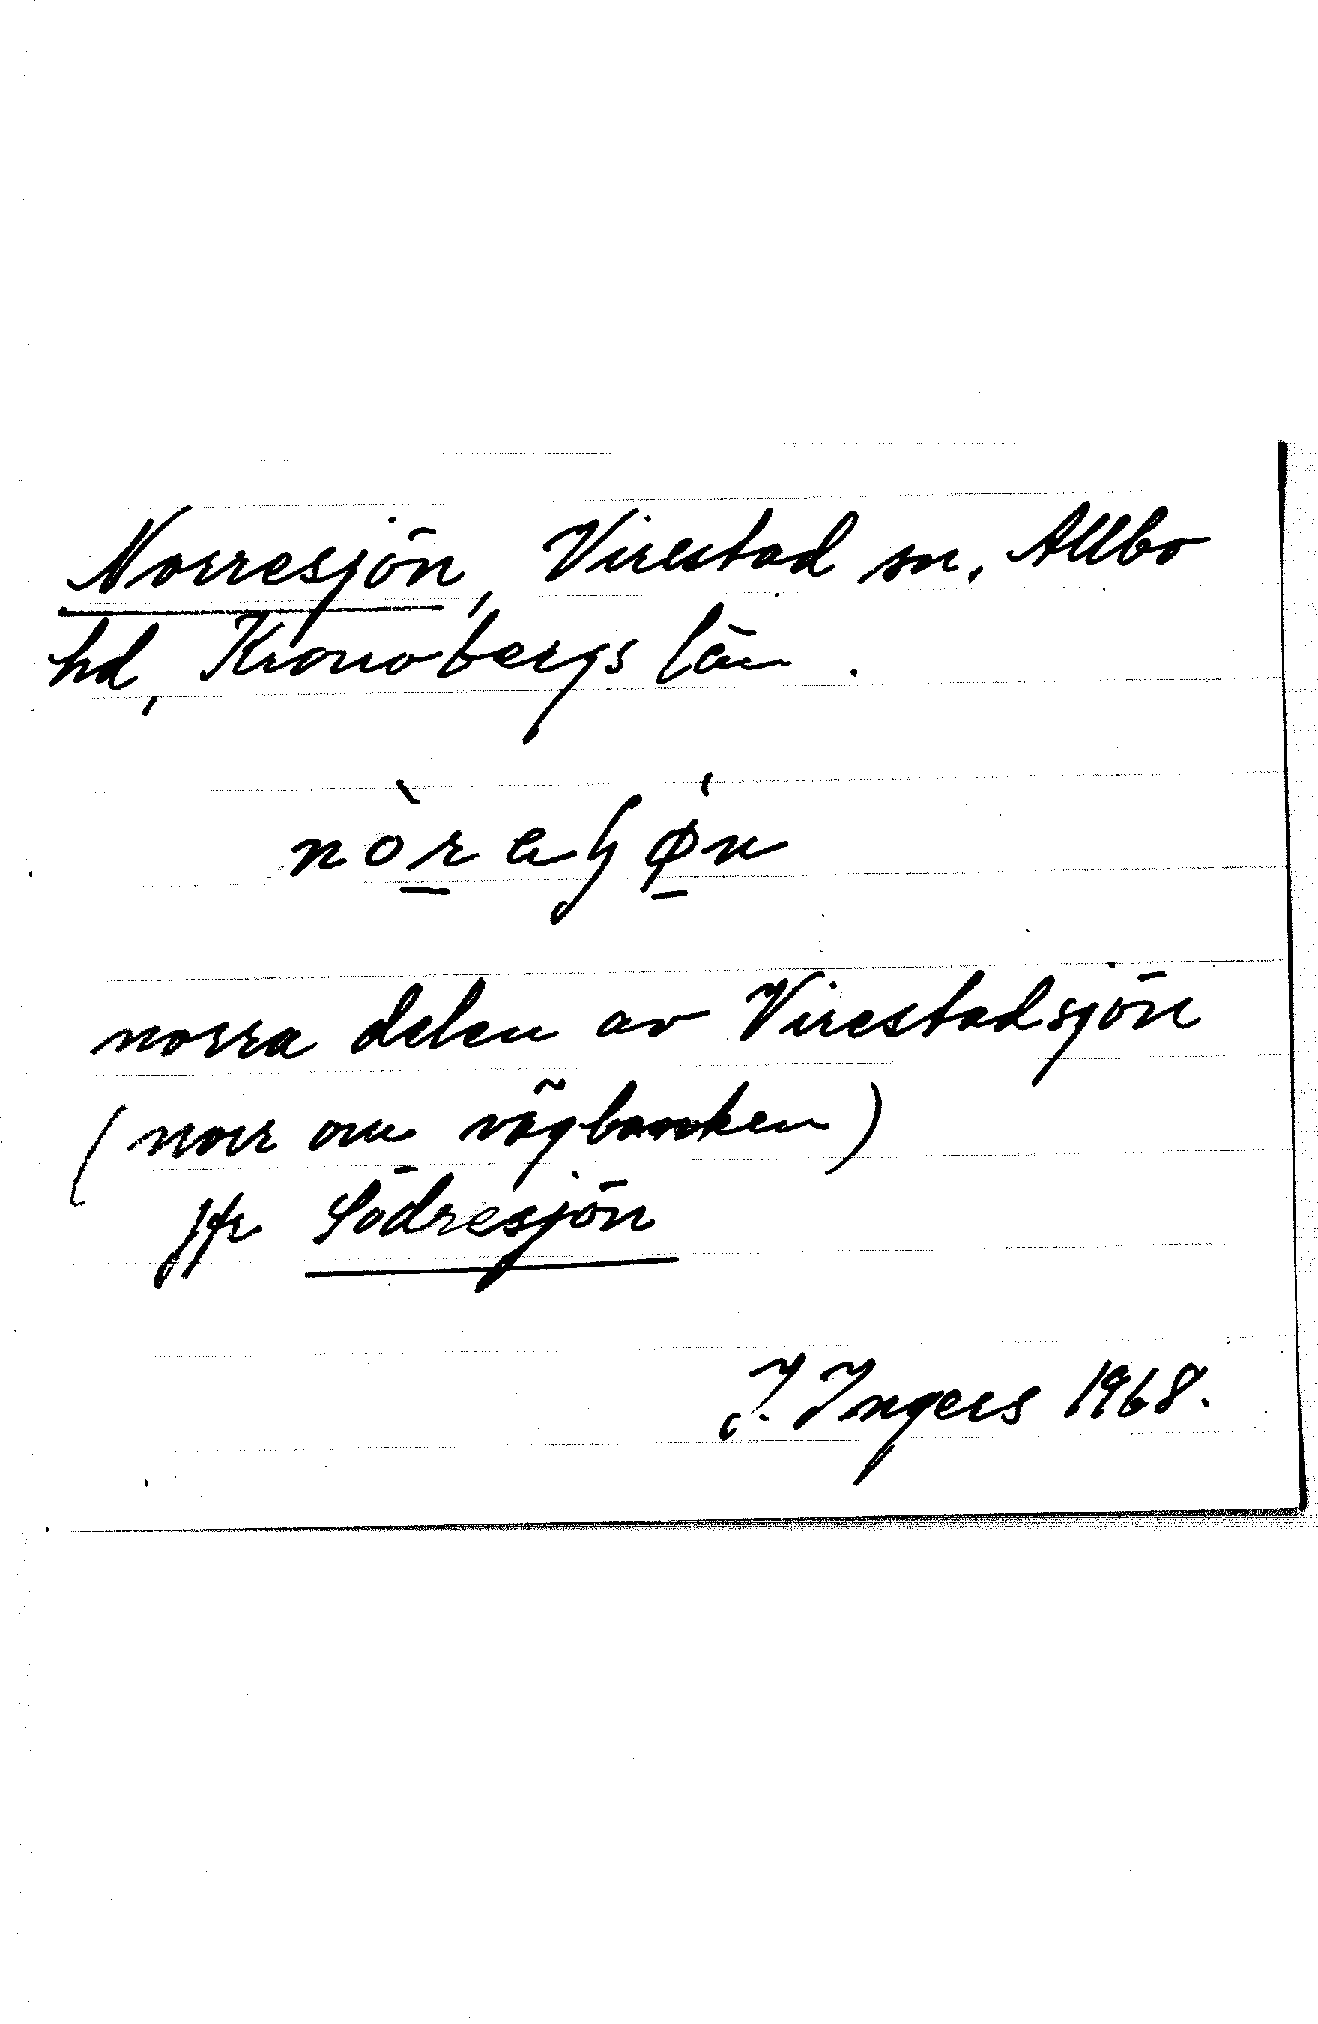 Norresjön, Virestad sn, Allbo
hd, Kronobergs län.
norra delen av Virestadsjön
(norr om vägbanken)
jfr Södresjön
I. Ingers 1968.